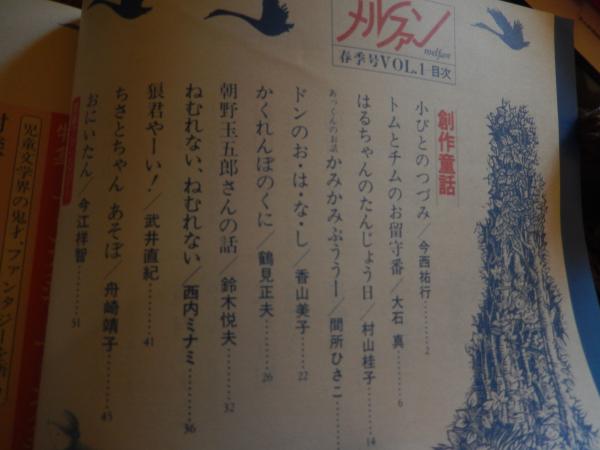 メルファン
melfan
春季号VOL.1 目次
創作童話
小びとのつづみ／今西祐行………2
トムとチムのお留守番／大石 真………6
はるちゃんのたんじょう日／村山桂子………14
あっくんのお話 かみかみぷううー／間所ひさこ………
ドンのお・は・な・し／香山美子………22
かくれんぼのくに／鶴見正夫………26
朝野玉五郎さんの話／鈴木悦夫………32
ねむれない、ねむれない／西内ミナミ………36
狼君やーい！／武井直紀………41
ちさとちゃん あそぼ／舟崎靖子………45
おにいたん／今江祥智………51
児童文学界の鬼才、ファンタジーを